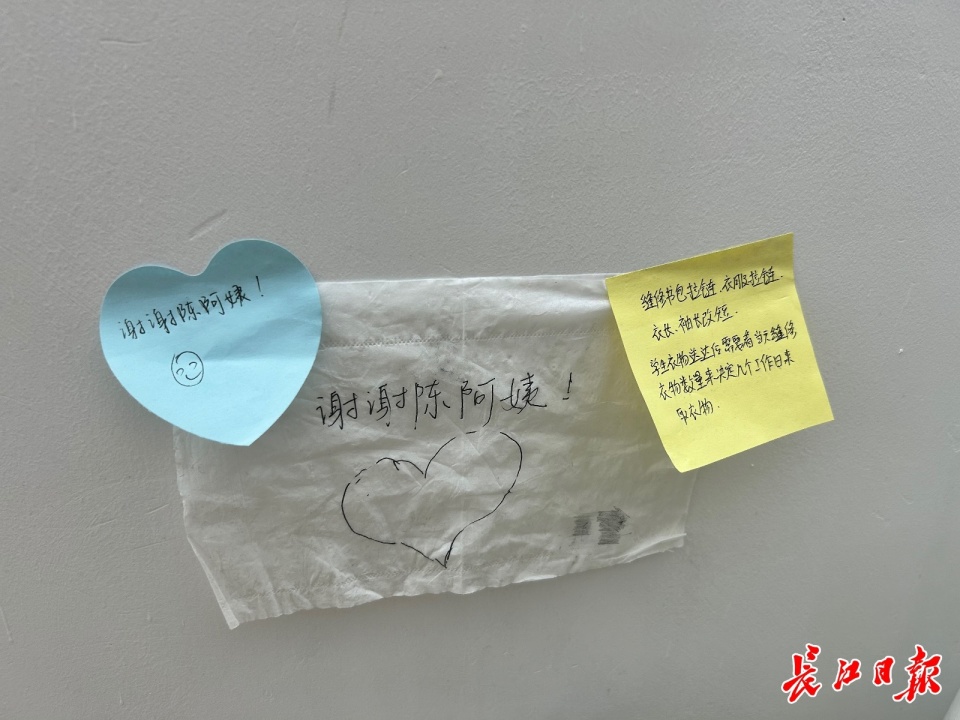 谢谢陈阿姨!
谢谢陈阿姨!
缝修书包拉链、衣服拉链、
衣长、袖长改短.
学生衣物送达后需要看当天缝修
衣物数量来决定几个工作日来
取衣物.
长江日报